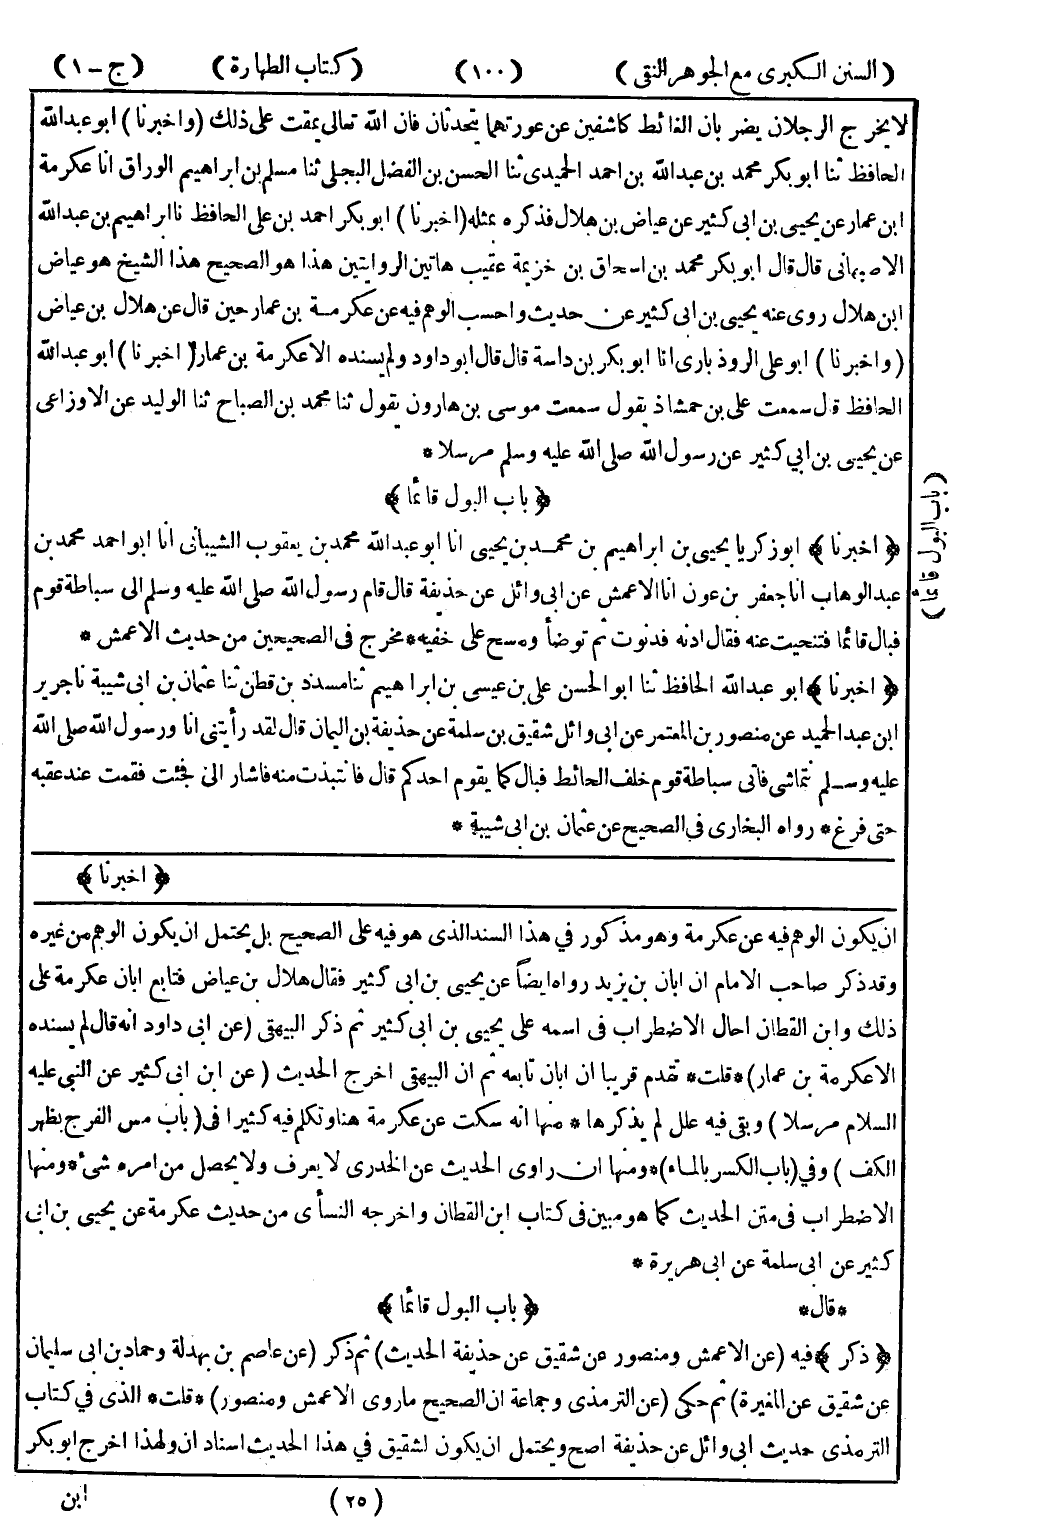 ( السنن الكبرى مع الجوهر النقى ) ( ١٠٠ ) ( كتاب الطهارة ) ( ج - ١ )
لا يخرج الرجلان يضربان الغائط كاشفين عن عورتهما يتحدثان فان الله تعالى يمقت على ذلك ( واخبرنا ) ابو عبد الله
الحافظ ثنا ابو بكر محمد بن عبد الله بن احمد الحميدى ثنا الحسن بن الفضل البجلى ثنا مسلم بن ابراهيم الوراق انا عكرمة
ابن عمار عن يحيى بن ابى كثير عن عياض بن هلال فذكره بمثله ( اخبرنا ) ابو بكر احمد بن على الحافظ نا ابراهيم بن عبد الله
الاصبهانى قال قال ابو بكر محمد بن اسحاق بن خزيمة عقيب هاتين الروايتين هذا هو الصحيح هذا الشيخ هو عياض
ابن هلال روى عنه يحيى بن ابى كثير عن حديث واحسب الوهم فيه عن عكرمة بن عمار حين قال عن هلال بن عياض
( واخبرنا ) ابو على الروذبارى انا ابو بكر بن داسة قال قال ابو داود ولم يسنده الا عكرمة بن عمار ( اخبرنا ) ابو عبد الله
الحافظ قال سمعت على بن حمشاذ يقول سمعت موسى بن هارون يقول ثنا محمد بن الصباح ثنا الوليد عن الاوزاعى
عن يحيى بن ابي كثير عن رسول الله صلى الله عليه وسلم مرسلا *
﴿ باب البول قائما ﴾
( باب البول قائما )
﴿ اخبرنا ﴾ ابو زكريا يحيى بن ابراهيم بن محمد بن يحيى انا ابو عبد الله محمد بن يعقوب الشيبانى انا ابو احمد محمد بن
عبد الوهاب انا جعفر بن عون انا الاعمش عن ابى وائل عن حذيفة قال قام رسول الله صلى الله عليه وسلم الى سباطة قوم
فبال قائما فتنحيت عنه فقال ادنه فدنوت ثم توضأ ومسح على خفيه * مخرج فى الصحيحين من حديث الاعمش *
﴿ اخبرنا ﴾ ابو عبد الله الحافظ ثنا ابو الحسن على بن عيسى بن ابراهيم ثنا مسدد بن قطن ثنا عثمان بن ابى شيبة نا جرير
ابن عبد الحميد عن منصور بن المعتمر عن ابى وائل شقيق بن سلمة عن حذيفة بن اليمان قال لقد رأيتنى انا ورسول الله صلى الله
عليه وسلم نتماشى فاتى سباطة قوم خلف الحائط فبال كما يقوم احدكم قال فانتبذت منه فاشار الى فجئت فقمت عند عقبه
حتى فرغ * رواه البخارى فى الصحيح عن عثمان بن ابى شيبة *
﴿ اخبرنا ﴾
ان يكون الوهم فيه عن عكرمة وهو مذكور في هذا السند الذى هو فيه على الصحيح بل يحتمل ان يكون الوهم من غيره
وقد ذكر صاحب الامام ان ابان بن يزيد رواه ايضاً عن يحيى بن ابى كثير فقال هلال بن عياض فتابع ابان عكرمة على
ذلك وابن القطان احال الاضطراب فى اسمه على يحيى بن ابى كثير ثم ذكر البيهقى ( عن ابى داود انه قال لم يسنده
الا عكرمة بن عمار ) * قلت * تقدم قريبا ان ابان تابعه ثم ان البيهقى اخرج الحديث ( عن ابن ابى كثير عن النبى عليه
السلام مرسلا ) وبقى فيه علل لم يذكرها * منها انه سكت عن عكرمة هنا وتكلم فيه كثيرا فى ( باب مس الفرج بظهر
الكف ) وفي ( باب الكسر بالماء ) * ومنها ان راوى الحديث عن الخدرى لا يعرف ولا يحصل من امره شئ * ومنها
الاضطراب فى متن الحديث كما هو مبين فى كتاب ابن القطان واخرجه النسأى من حديث عكرمة عن يحيى بن ابى
كثير عن ابى سلمة عن ابى هريرة *
* قال * ﴿ باب البول قائما ﴾
﴿ ذكر ﴾ فيه ( عن الاعمش ومنصور عن شقيق عن حذيفة الحديث ) ثم ذكر ( عن عاصم بن بهدلة وحماد بن ابى سليمان
عن شقيق عن المغيرة ) ثم حكى ( عن الترمذى وجماعة ان الصحيح ما روى الاعمش ومنصور ) * قلت * الذى في كتاب
الترمذى حديث ابى وائل عن حذيفة اصح ويحتمل ان يكون لشقيق في هذا الحديث اسنادان ولهذا اخرج ابو بكر
( ٢٥ ) ابن